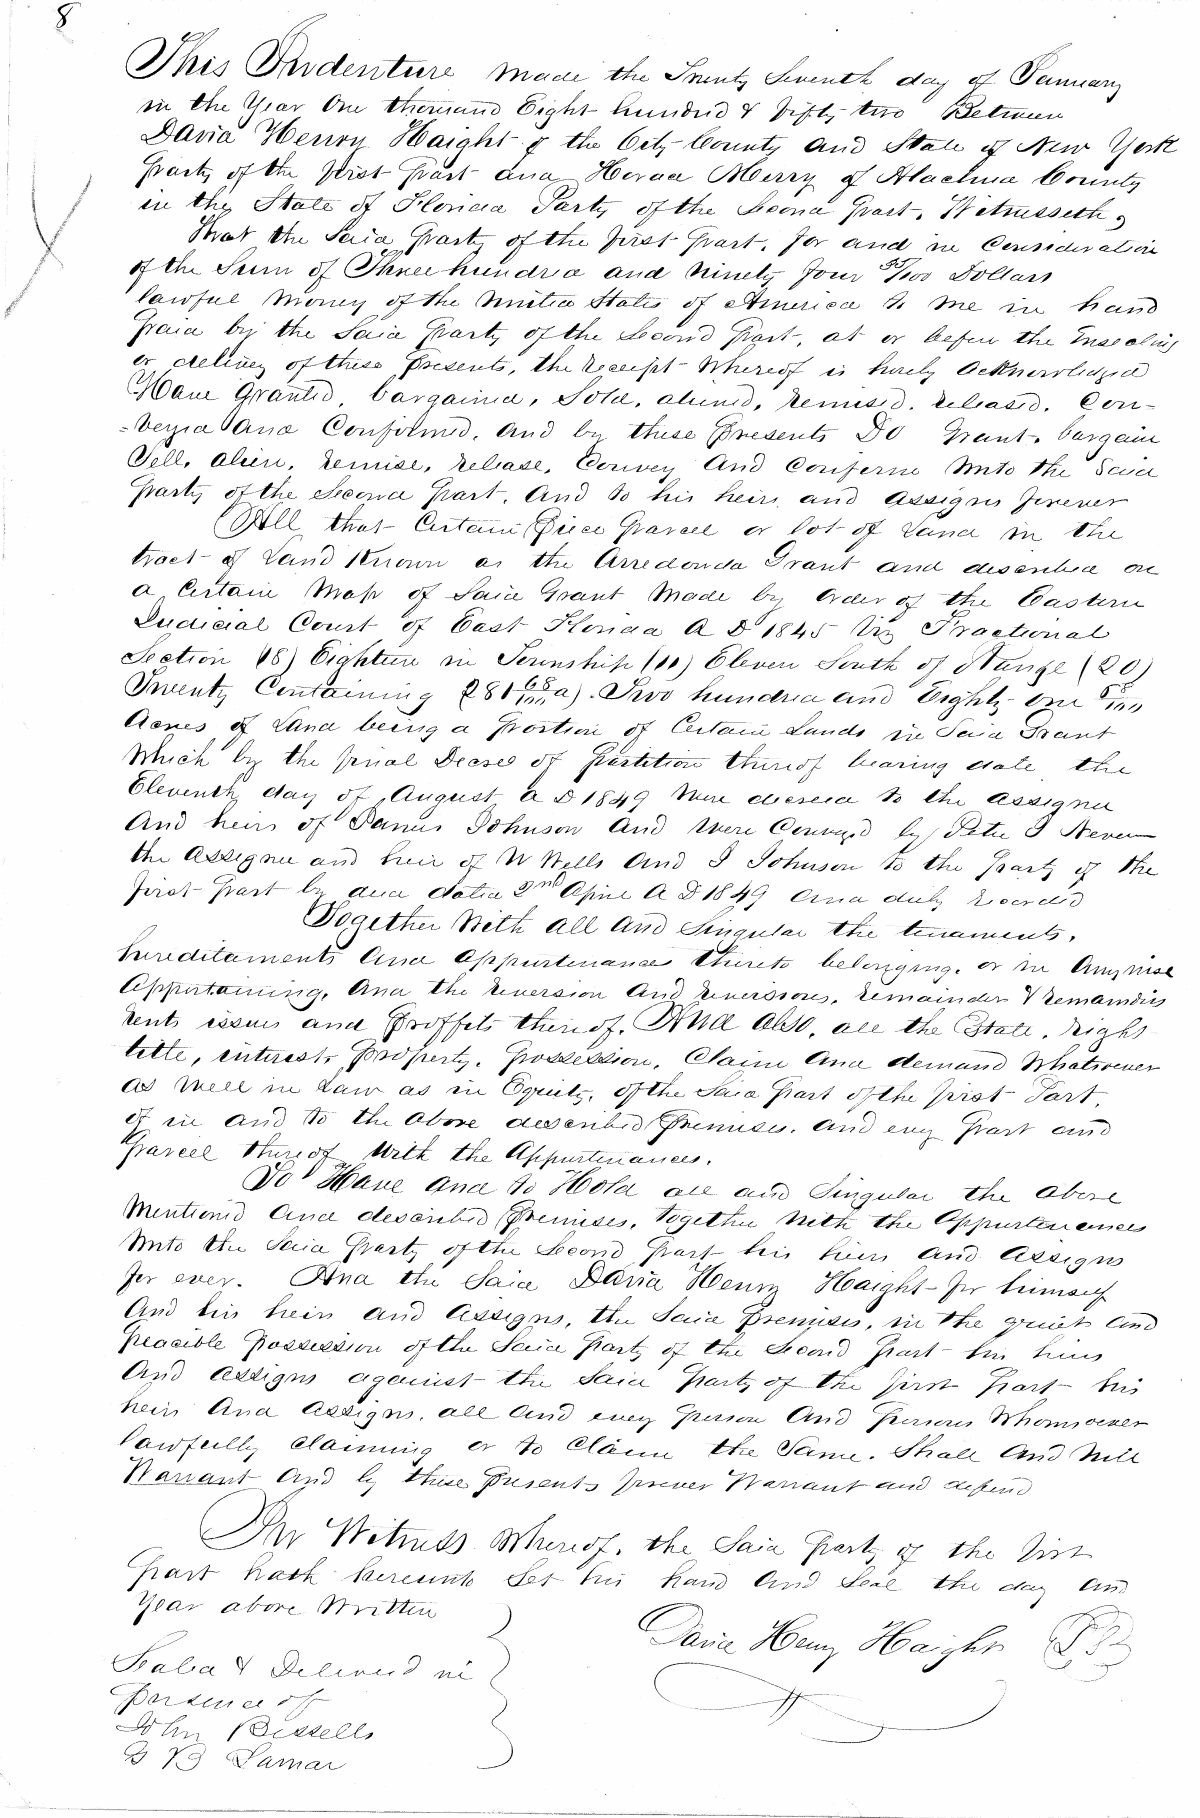 8
This Indenture made the Twenty Seventh day of January
in the Year One thousand Eight hundred & fifty two Between
David Henry Haight of the City County and State of New York
Party of the first Part and Merry of Alachua County
in the State of Florida Party of the Second Part. Witnesseth,
That the Said Party of the first Part. for and in Consideration
of the Sum of Three hundred and ninety four /100 Dollars
lawful money of the United States of America to me in hand
Paid by the Said Party of the Second Part, at or before the Ensealing
or delivery of these Presents, the receipt Whereof is hereby acknowledged
Have Granted, bargained, Sold, aliened, remised, released, Con-
-veyed and Confirmed. And by these Presents Do Grant, bargain
Sell, alien, remise, release, Convey And Confirm Unto the Said
Party of the Second Part. And to his heirs and Assigns forever
All that Certain Piece Parcel or lot of Land in the
tract of Land Known as the Arredonda Grant and described on
a Certain Map of Said Grant Made by Order of the Eastern
Judicial Court of East Florida A D 1845 Viz Fractional
Section (18) Eighteen in Township (11) Eleven South of Range (20)
Twenty Containing (281 68/100 a). Two hundred and Eighty One 68/100
Acres of Land being a Portion of Certain Lands in Said Grant
Which by the final Decree of Partition thereof bearing date the
Eleventh day of August A D 1849 Were decreed to the assignee
And heirs of James Johnson And Were Conveyed by Peter I Neven
the assignee and heir of W Wells And J Johnson to the Party of the
first Part by deed dated 2nd April A D 1849 and duly recorded
Together With all And Singular the tenaments,
hereditaments And appurtenances thereto belonging, or in Anywise
Appertaining, And the reversion And reversions, remainder & remainders
rents issues and Proffets thereof. And also, all the Estate, right
title, interest, Property, Possession, Claim And demand Whatsoever
as well in Law as in Equity, of the Said Part of the first Part,
of in and to the above described Premises. and every Part and
Parcel thereof With the Appurtenances.
To Have and to Hold all and Singular the above
Mentioned And described Premises, together With the Appurtenances
Unto the Said Party of the Second Part his heirs and assigns
for ever. And the Said David Henry Haight for himself
And his heirs and Assigns, the Said Premises, in the quiet and
Peacible Possession of the Said Party of the Second Part his heirs
And assigns against the Said Party of the first Part his
heirs And Assigns, all And every Person And Persons Whomsoever
lawfully Claiming or to Claim the Same. Shall And Will
Warrant And by these Presents forever Warrant and defend
In Witness Whereof, the Said Party of the first
Part hath hereunto Set his hand And Seal the day and
Year above Written
David Henry Haight
Sealed & Delivered in
Presence of
John Bissells
G B Lamar